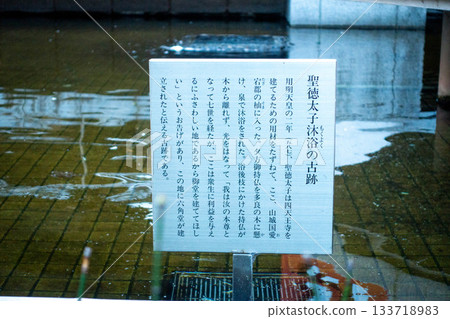 聖徳太子沐浴の古跡
用明天皇の二年 聖徳太子は四天王寺を
建てるための用材をたずねて、ここ、山城国愛
宕郡の杣に入った。夕方御持仏を多良の木に懸
け、泉で沐浴をされた。浴後枝にかけた持仏が
木から離れず、光をはなって「我は汝の本尊と
なって七世を経たが、ここは衆生に利益を与え
るにふさわしい地であるから御堂を建ててほし
い」というお告げがあり、この地に六角堂が建
立されたと伝える古跡である。
133718983